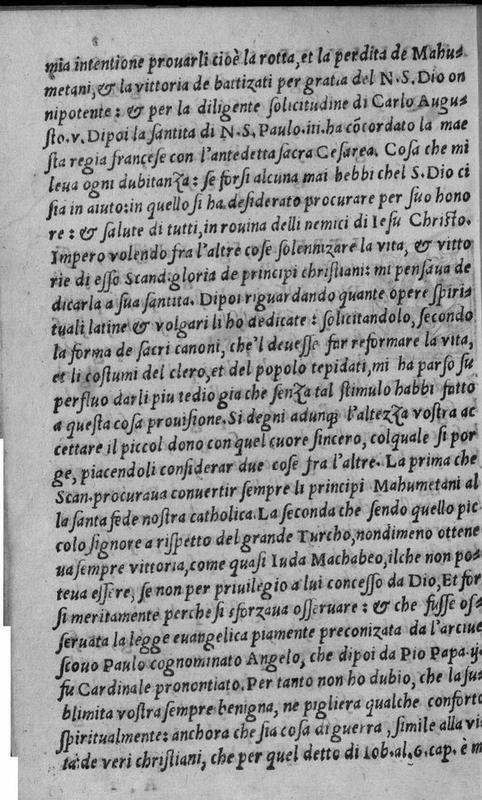 mia intentione prouarli cioè la rotta, et la perdita de Mahu-
metani, & la vittoria de battizati per gratia del N. S. Dio on
nipotente: & per la diligente solicitudine di Carlo Augu-
sto. v. Dipoi la santita di N. S. Paulo. iii. ha cõcordato la mae
sta regia françese con l'antedetta sacra Cesarea. Cosa che mi
leua ogni dubitanza: se forsi alcuna mai hebbi chel S. Dio ci
sia in aiuto: in quello si ha desiderato procurare per suo hono
re: & salute di tutti, in rouina delli nemici di Iesu Christo.
Impero volendo fra l'altre cose solennizare la vita, & vitto
rie di esso Scand. gloria de principi christiani: mi pensaua de
dicarla a sua santita. Dipoi riguardando quante opere spiris
tuali latine & volgari li ho dedicate: solicitandolo, secondo
la forma de sacri canoni, che'l deuesse far reformare la vita,
et li costumi del clero, et del popolo tepidati, mi ha parso su
perfluo darli piu tedio gia che senza tal stimulo habbi fatto
a questa cosa prouisione. Si degni adunq; l'altezza vostra ac
cettare il piccol dono con quel cuore sincero, colquale si por
ge, piacendoli considerar due cose fra l'altre. La prima che
Scan. procuraua conuertir sempre li principi Mahumetani al
la santa fede nostra catholica. La seconda che sendo quello pic
colo signore a rispetto del grande Turcho, nondimeno ottene
ua sempre vittoria, come quasi Iuda Machabeo, ilche non po-
teua essere, se non per priuilegio a lui concesso da Dio, Et for
si meritamente perche si sforzaua osseruare: & che fusse os-
seruata la legge euangelica piamente preconizata da l'arciue
scouo Paulo cognominato Angelo, che dipoi da Pio Papa. ij.
fu Cardinale pronontiato. Per tanto non ho dubio, che la su
blimita vostra sempre benigna, ne pigliera qualche conforto
spiritualmente: anchora che sia cosa di guerra, simile alla vi
ta: de veri christiani, che per quel detto di Iob. al. 6. cap. è m